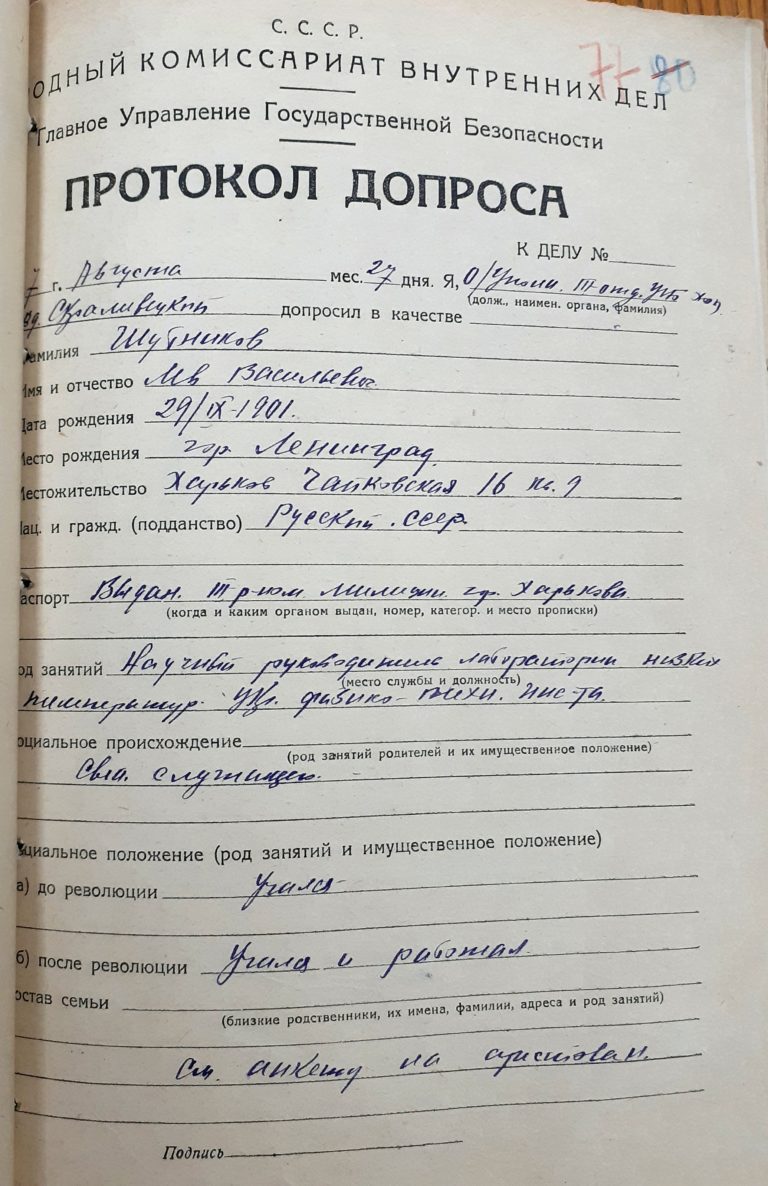 С. С. С. Р.
77 80
ОДНЫЙ КОМИССАРИАТ ВНУТРЕННИХ ДЕЛ
Главное Управление Государственной Безопасности
ПРОТОКОЛ ДОПРОСА
К ДЕЛУ №
7 г. Августа мес. 27 дня. Я, О/Уполн.
(долж., наимен. органа, фамилия)
допросил в качестве
амилия Шутников
Имя и отчество Лев Васильевич
Дата рождения 29/IX-1901.
Место рождения гор. Ленинград
Местожительство Харьков Чайковская 16 кв. 9
Нац. и гражд. (подданство) Русский. ссср.
аспорт Выдан. III р-ном. милиции гор. Харькова
(когда и каким органом выдан, номер, категор. и место прописки)
од занятий Научный руководитель лаборатории низких
(место службы и должность)
температур. Укр. физико-техн. инс-та.
оциальное происхождение
(род занятий родителей и их имущественное положение)
служащего.
оциальное положение (род занятий и имущественное положение)
а) до революции Учился
б) после революции Учился и работал
остав семьи
(близкие родственники, их имена, фамилии, адреса и род занятий)
см. анкету на арестован.
Подпись